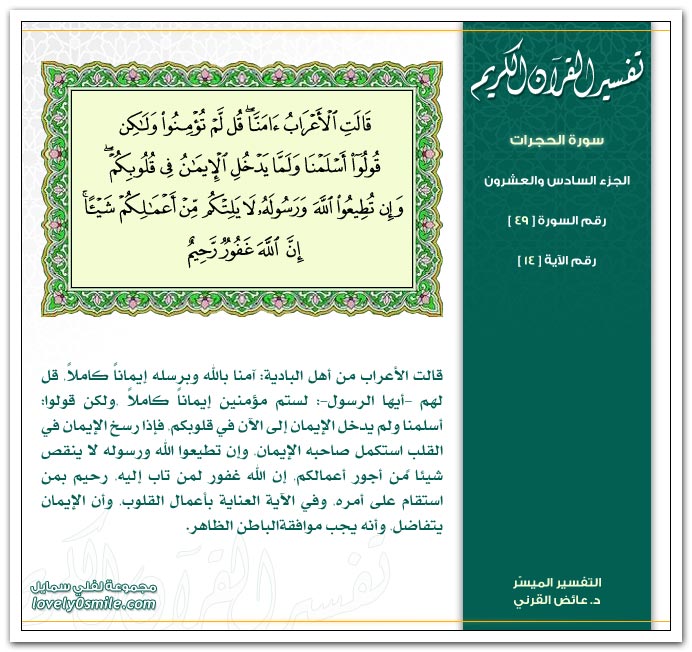 تفسير القرآن الكريم
سورة الحجرات
الجزء السادس والعشرون
رقم السورة [ ٤٩ ]
رقم الآية [ ١٤ ]
قَالَتِ ٱلْأَعْرَابُ ءَامَنَّاۖ قُل لَّمْ تُؤْمِنُوا۟ وَلَـٰكِن
قُولُوٓا۟ أَسْلَمْنَا وَلَمَّا يَدْخُلِ ٱلْإِيمَـٰنُ فِى قُلُوبِكُمْۖ
وَإِن تُطِيعُوا۟ ٱللَّهَ وَرَسُولَهُۥ لَا يَلِتْكُم مِّنْ أَعْمَـٰلِكُمْ شَيْـًٔاۚ
إِنَّ ٱللَّهَ غَفُورٌ رَّحِيمٌ
قالت الأعراب من أهل البادية: آمنا بالله وبرسله إيماناً كاملاً، قل
لهم -أيها الرسول-: لستم مؤمنين إيماناً كاملاً ،ولكن قولوا:
أسلمنا ولم يدخل الإيمان إلى الآن في قلوبكم، فإذا رسخ الإيمان في
القلب استكمل صاحبه الإيمان، وإن تطيعوا الله ورسوله لا ينقص
شيئا ًمن أجور أعمالكم، إن الله غفور لمن تاب إليه، رحيم بمن
استقام على أمره، وفي الآية العناية بأعمال القلوب، وأن الإيمان
يتفاضل، وأنه يجب موافقةالباطن الظاهر.
تفسير القرآن الكريم
التفسير الميسّر
د. عائض القرني
مجموعة لفلي سمايل
lovely0smile.com